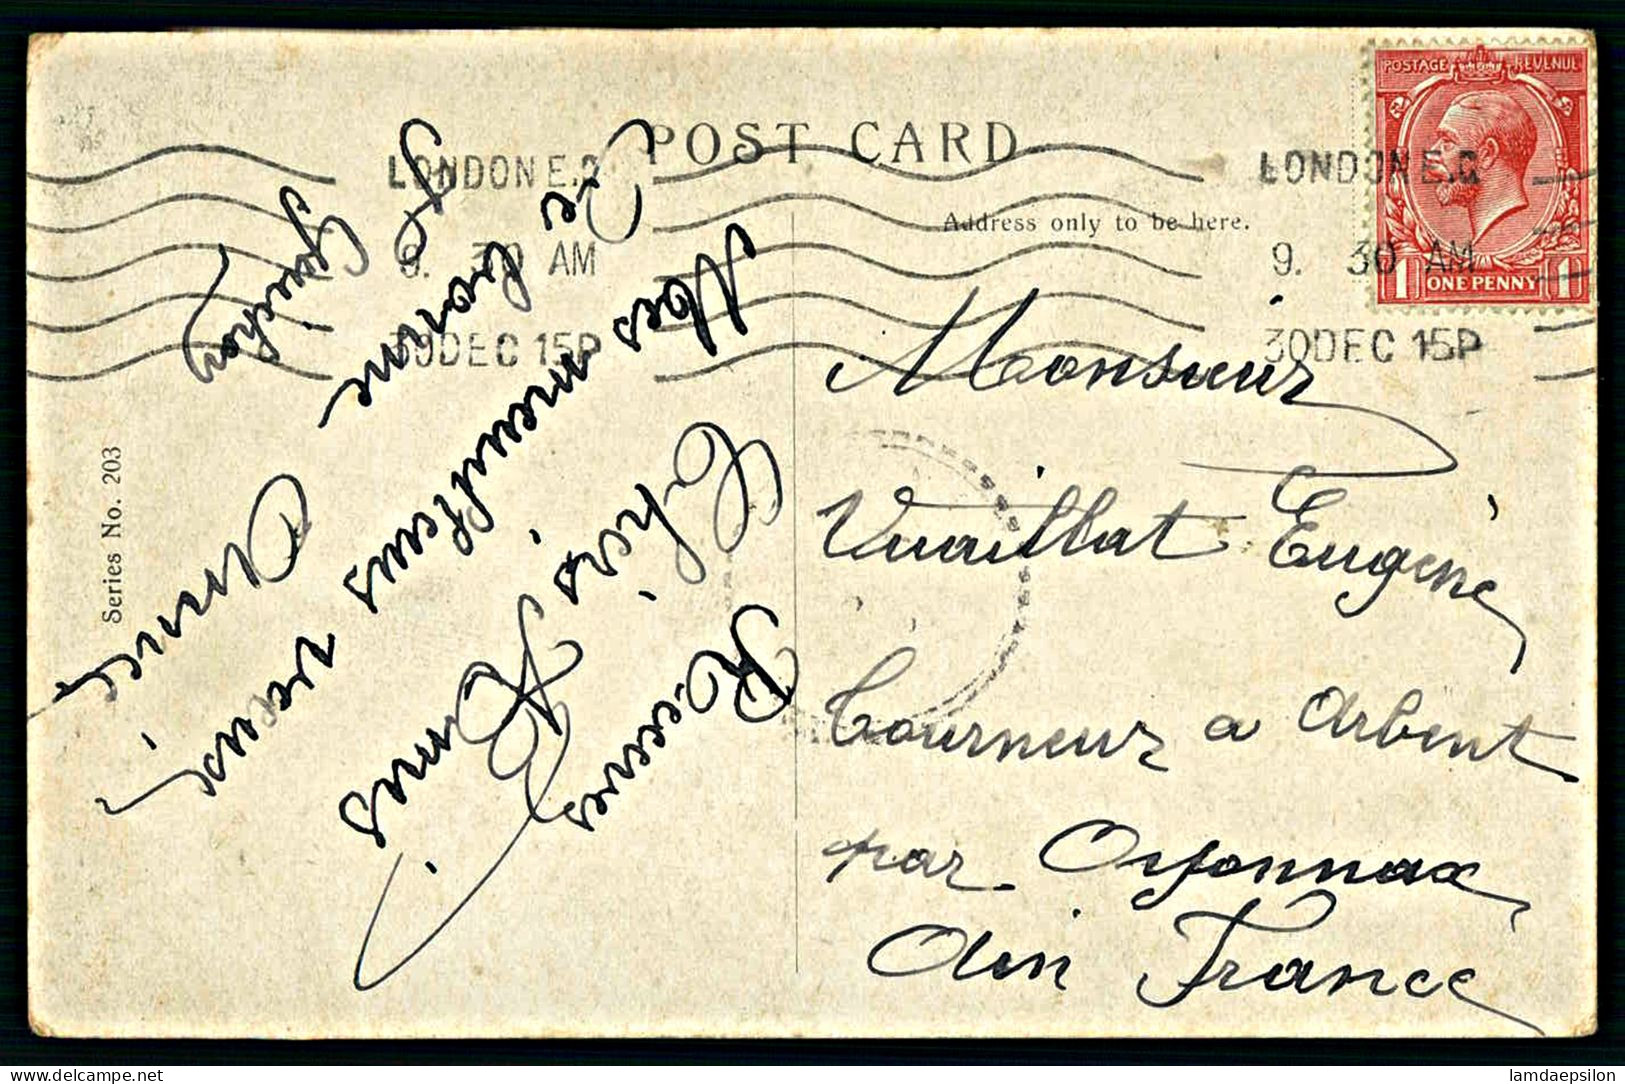 POST CARD
Address only to be here.
Series No. 203
LONDON E.C
9. 30 AM
30 DEC 15P
LONDON E.C
9. 30 AM
30 DEC 15P
POSTAGE REVENUE
1 ONE PENNY 1
Monsieur
Vuaillat Eugène
tourneur a Arbent
par Oyonnax
Ain France
Chers Amis
Recevez
Mes meilleurs veux
De bonne
Année
Guichon
lamdaepsilon.delcampe.net